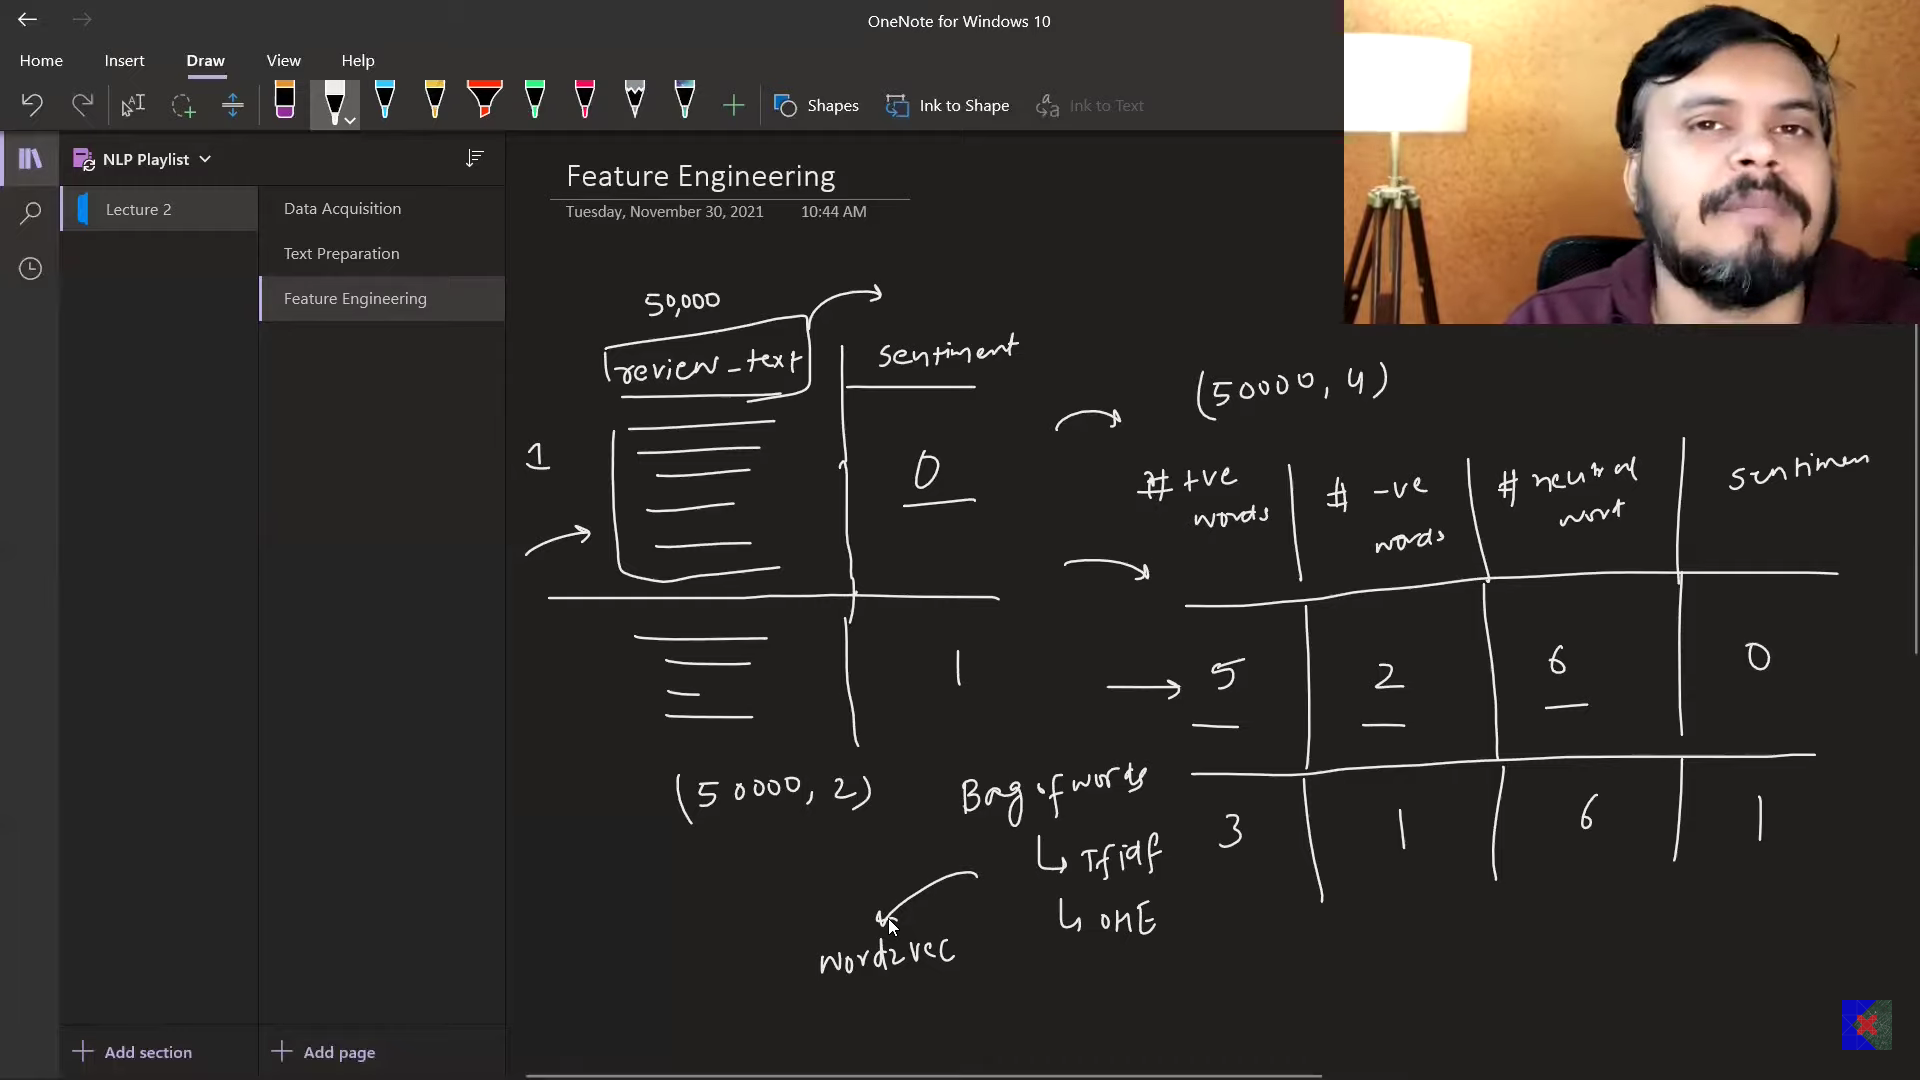 OneNote for Windows 10
Home Insert Draw View Help
Shapes Ink to Shape Ink to Text
NLP Playlist
Lecture 2
Data Acquisition
Text Preparation
Feature Engineering
Feature Engineering
Tuesday, November 30, 2021 10:44 AM
50,000
review_text sentiment
1
0
1
(50000, 2)
(50000, 4)
# +ve words # -ve words # neutral word sentimen
5 2 6 0
3 1 6 1
Bag of words
Tfidf
OHE
word2vec
Add section Add page